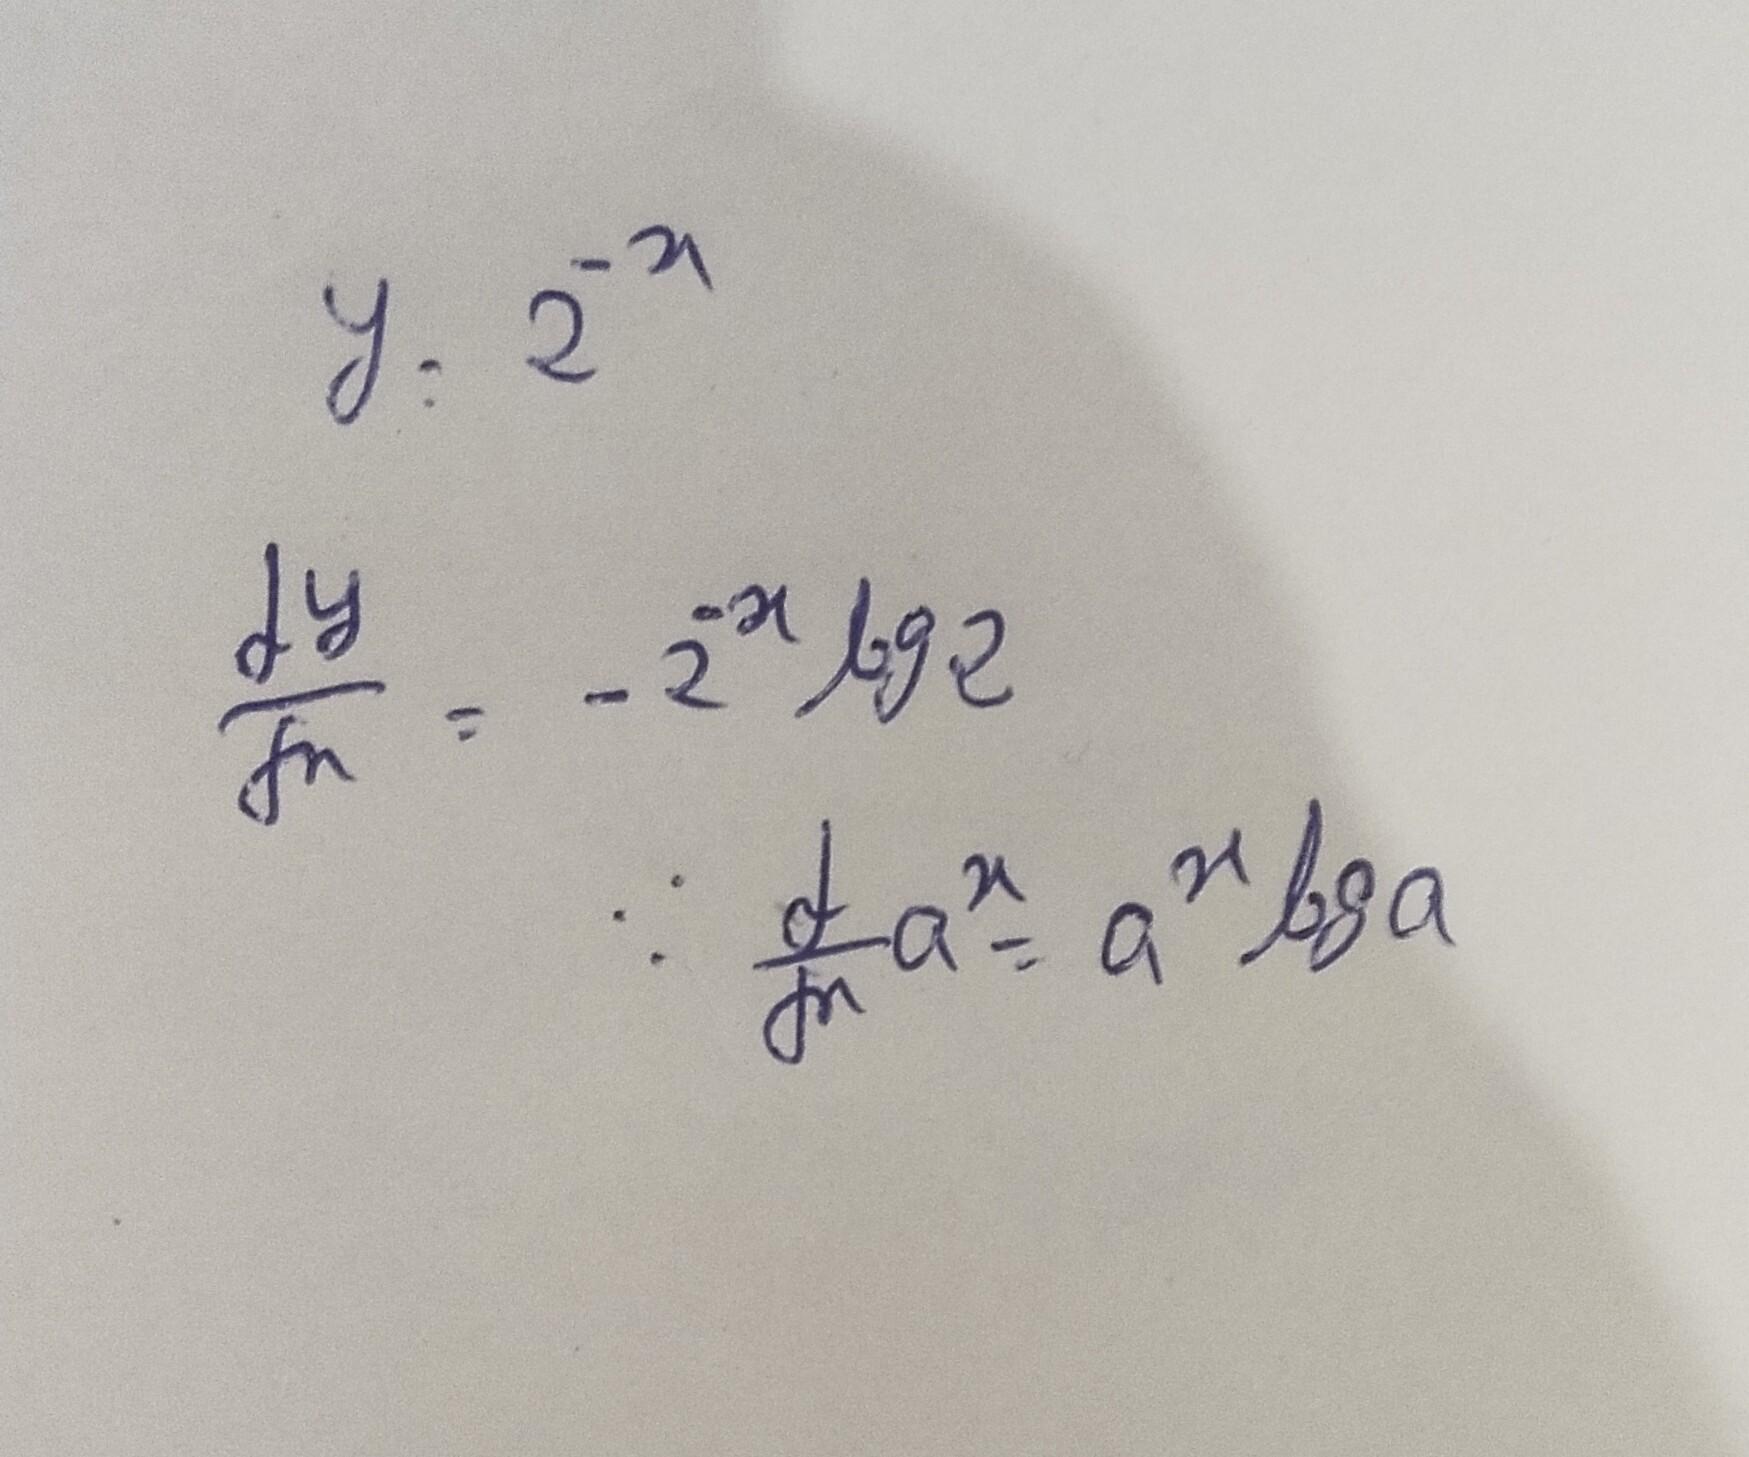 y = 2^-x
dy/dx = -2^-x log 2
∵ d/dx a^x = a^x log a